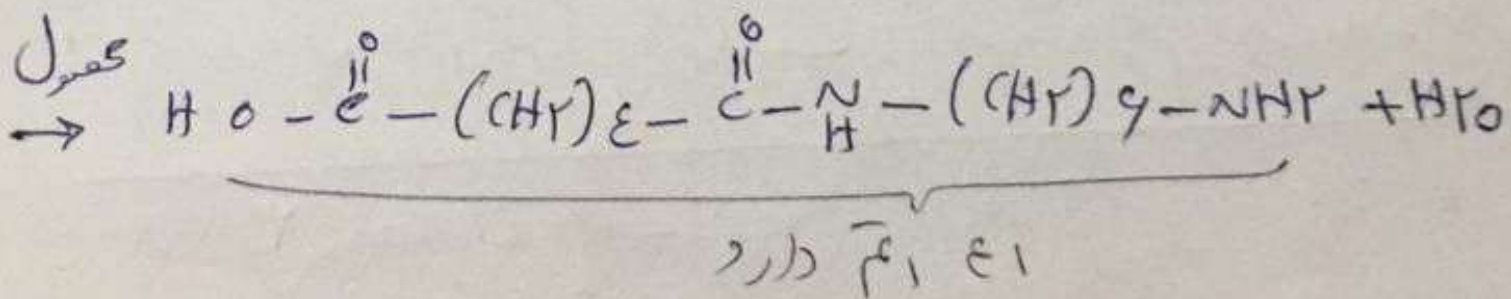 محصول
O O
|| ||
→ HO - C - (CH۲)۴ - C - N - (CH۲)۶ - NH۲ + H۲O
H
۴۱ اتم دارد